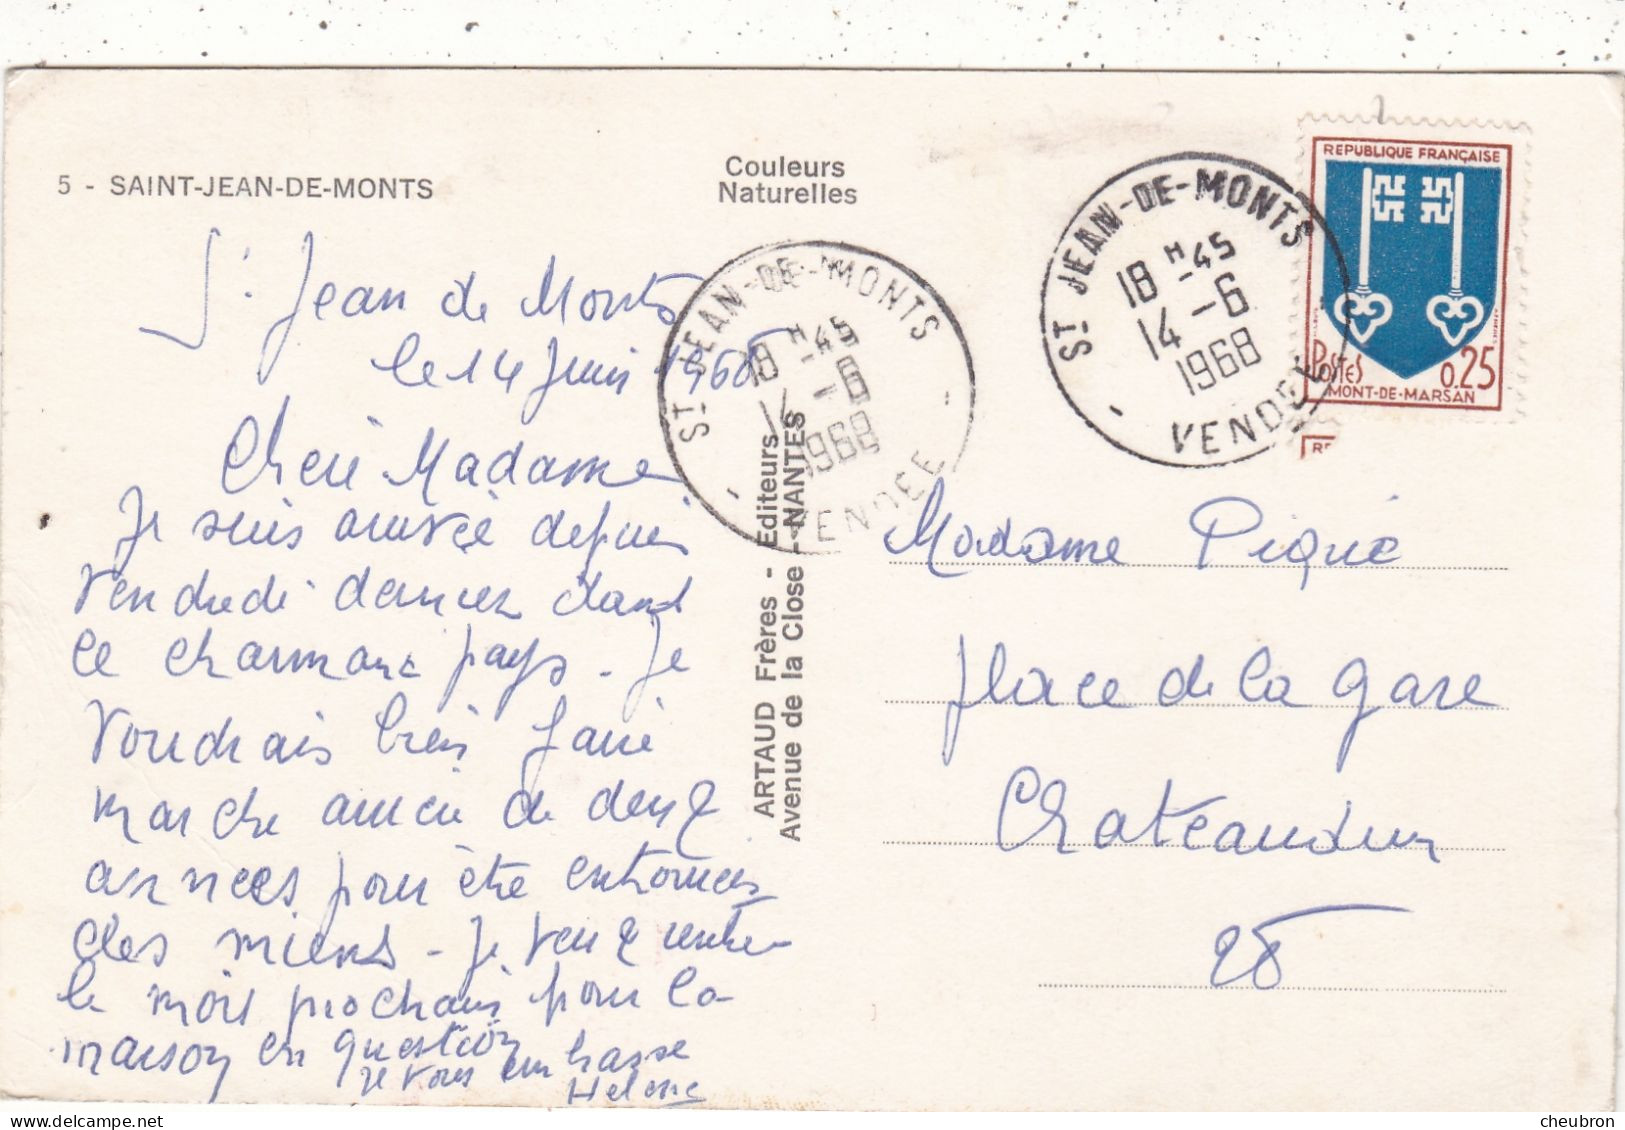 5 - SAINT-JEAN-DE-MONTS
Couleurs
Naturelles
St Jean de Monts
le 14 Juin 1968
Chère Madame
Je suis arrivée depuis
vendredi dernier dans
ce charmant pays. Je
voudrais bien faire
marche de deux
années pour être
des miens - Je veux rentrer
le mois prochain pour la
maison en question
je vous embrasse
Helene
ARTAUD Frères - Editeurs
Avenue de la Close - NANTES
ST JEAN-DE-MONTS
18 H 45
14 - 6
1968
VENDEE
ST JEAN-DE-MONTS
18 H 45
14 - 6
1968
VENDEE
REPUBLIQUE FRANÇAISE
POSTES
0,25
MONT-DE-MARSAN
RE
Madame Piquie
place de la gare
Chateaudun
28
cheubron
delcampe.net